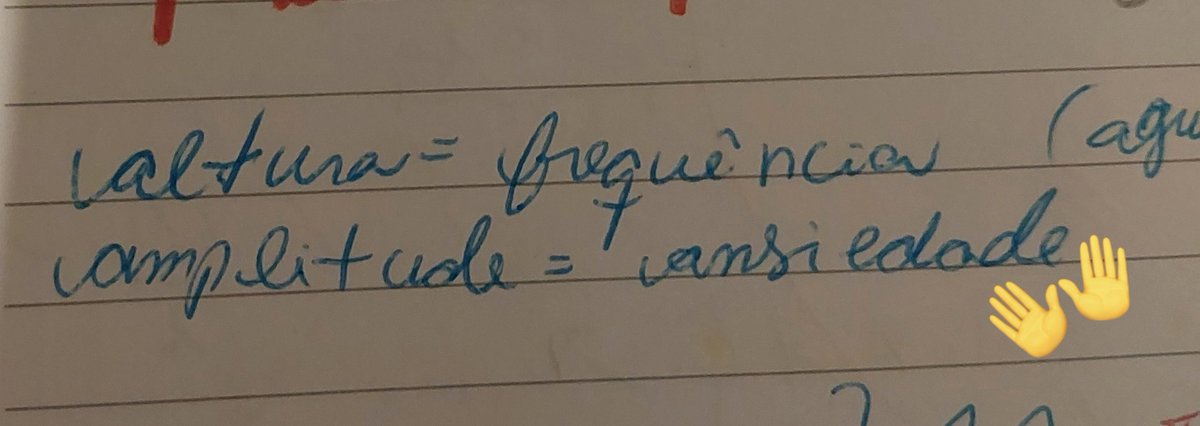 altura = frequência (agu
amplitude = ansiedade